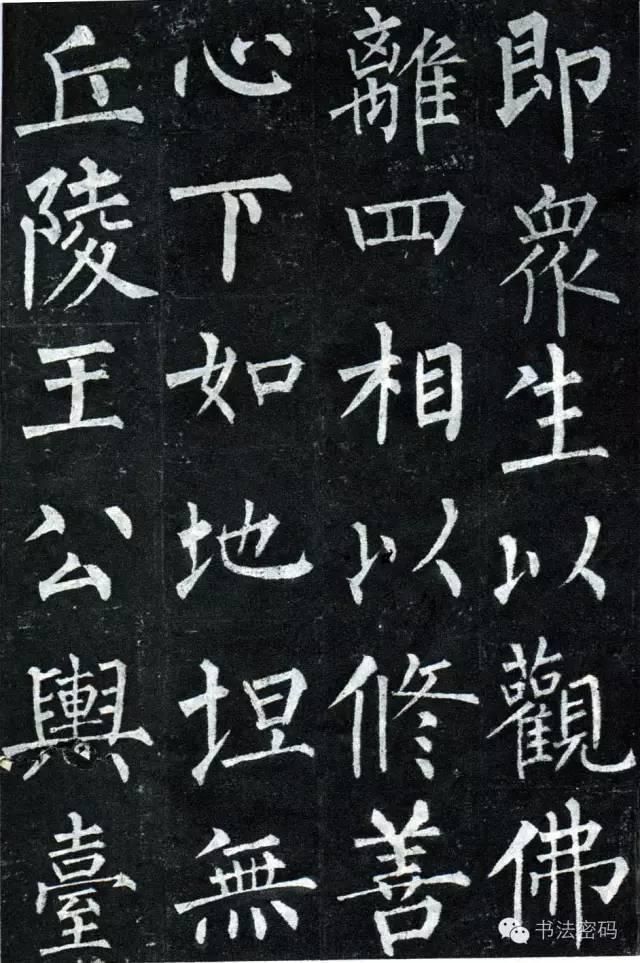 即眾生以觀佛
離四相以修善
心下如地坦無
丘陵王公輿臺
书法密码